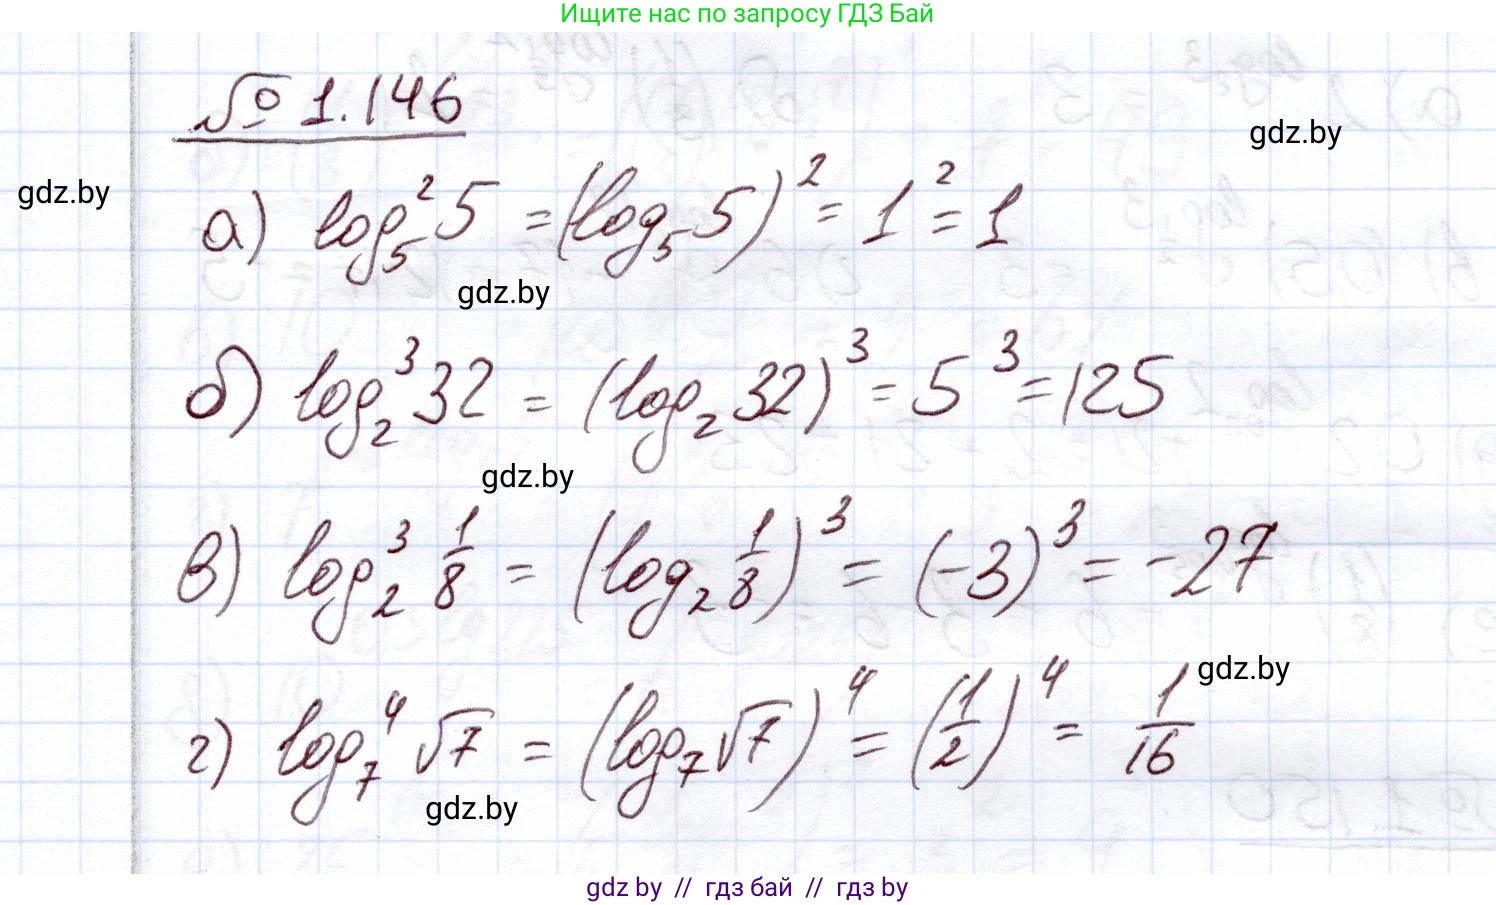 Ищите нас по запросу ГДЗ Бай
№ 1.146
gdz.by
gdz.by
а) log₅² 5 = (log₅ 5)² = 1² = 1
gdz.by
б) log₂³ 32 = (log₂ 32)³ = 5³ = 125
gdz.by
в) log₂³ 1/8 = (log₂ 1/8)³ = (-3)³ = -27
gdz.by
г) log₇⁴ √7 = (log₇ √7)⁴ = (1/2)⁴ = 1/16
gdz.by
gdz by // гдз бай // гдз by